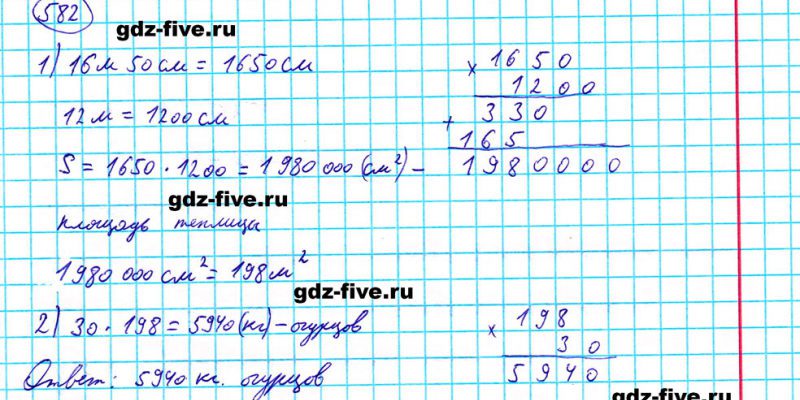 582
gdz-five.ru
1) 16 м 50 см = 1650 см
× 1650
1200
12 м = 1200 см
+ 330
165
S = 1650 · 1200 = 1980 000 (см²) –
1980000
gdz-five.ru
площадь теплицы
1980 000 см² = 198 м²
gdz-five.ru
2) 30 · 198 = 5940 (кг) – огурцов
× 198
30
5940
Ответ: 5940 кг. огурцов
gdz-five.ru